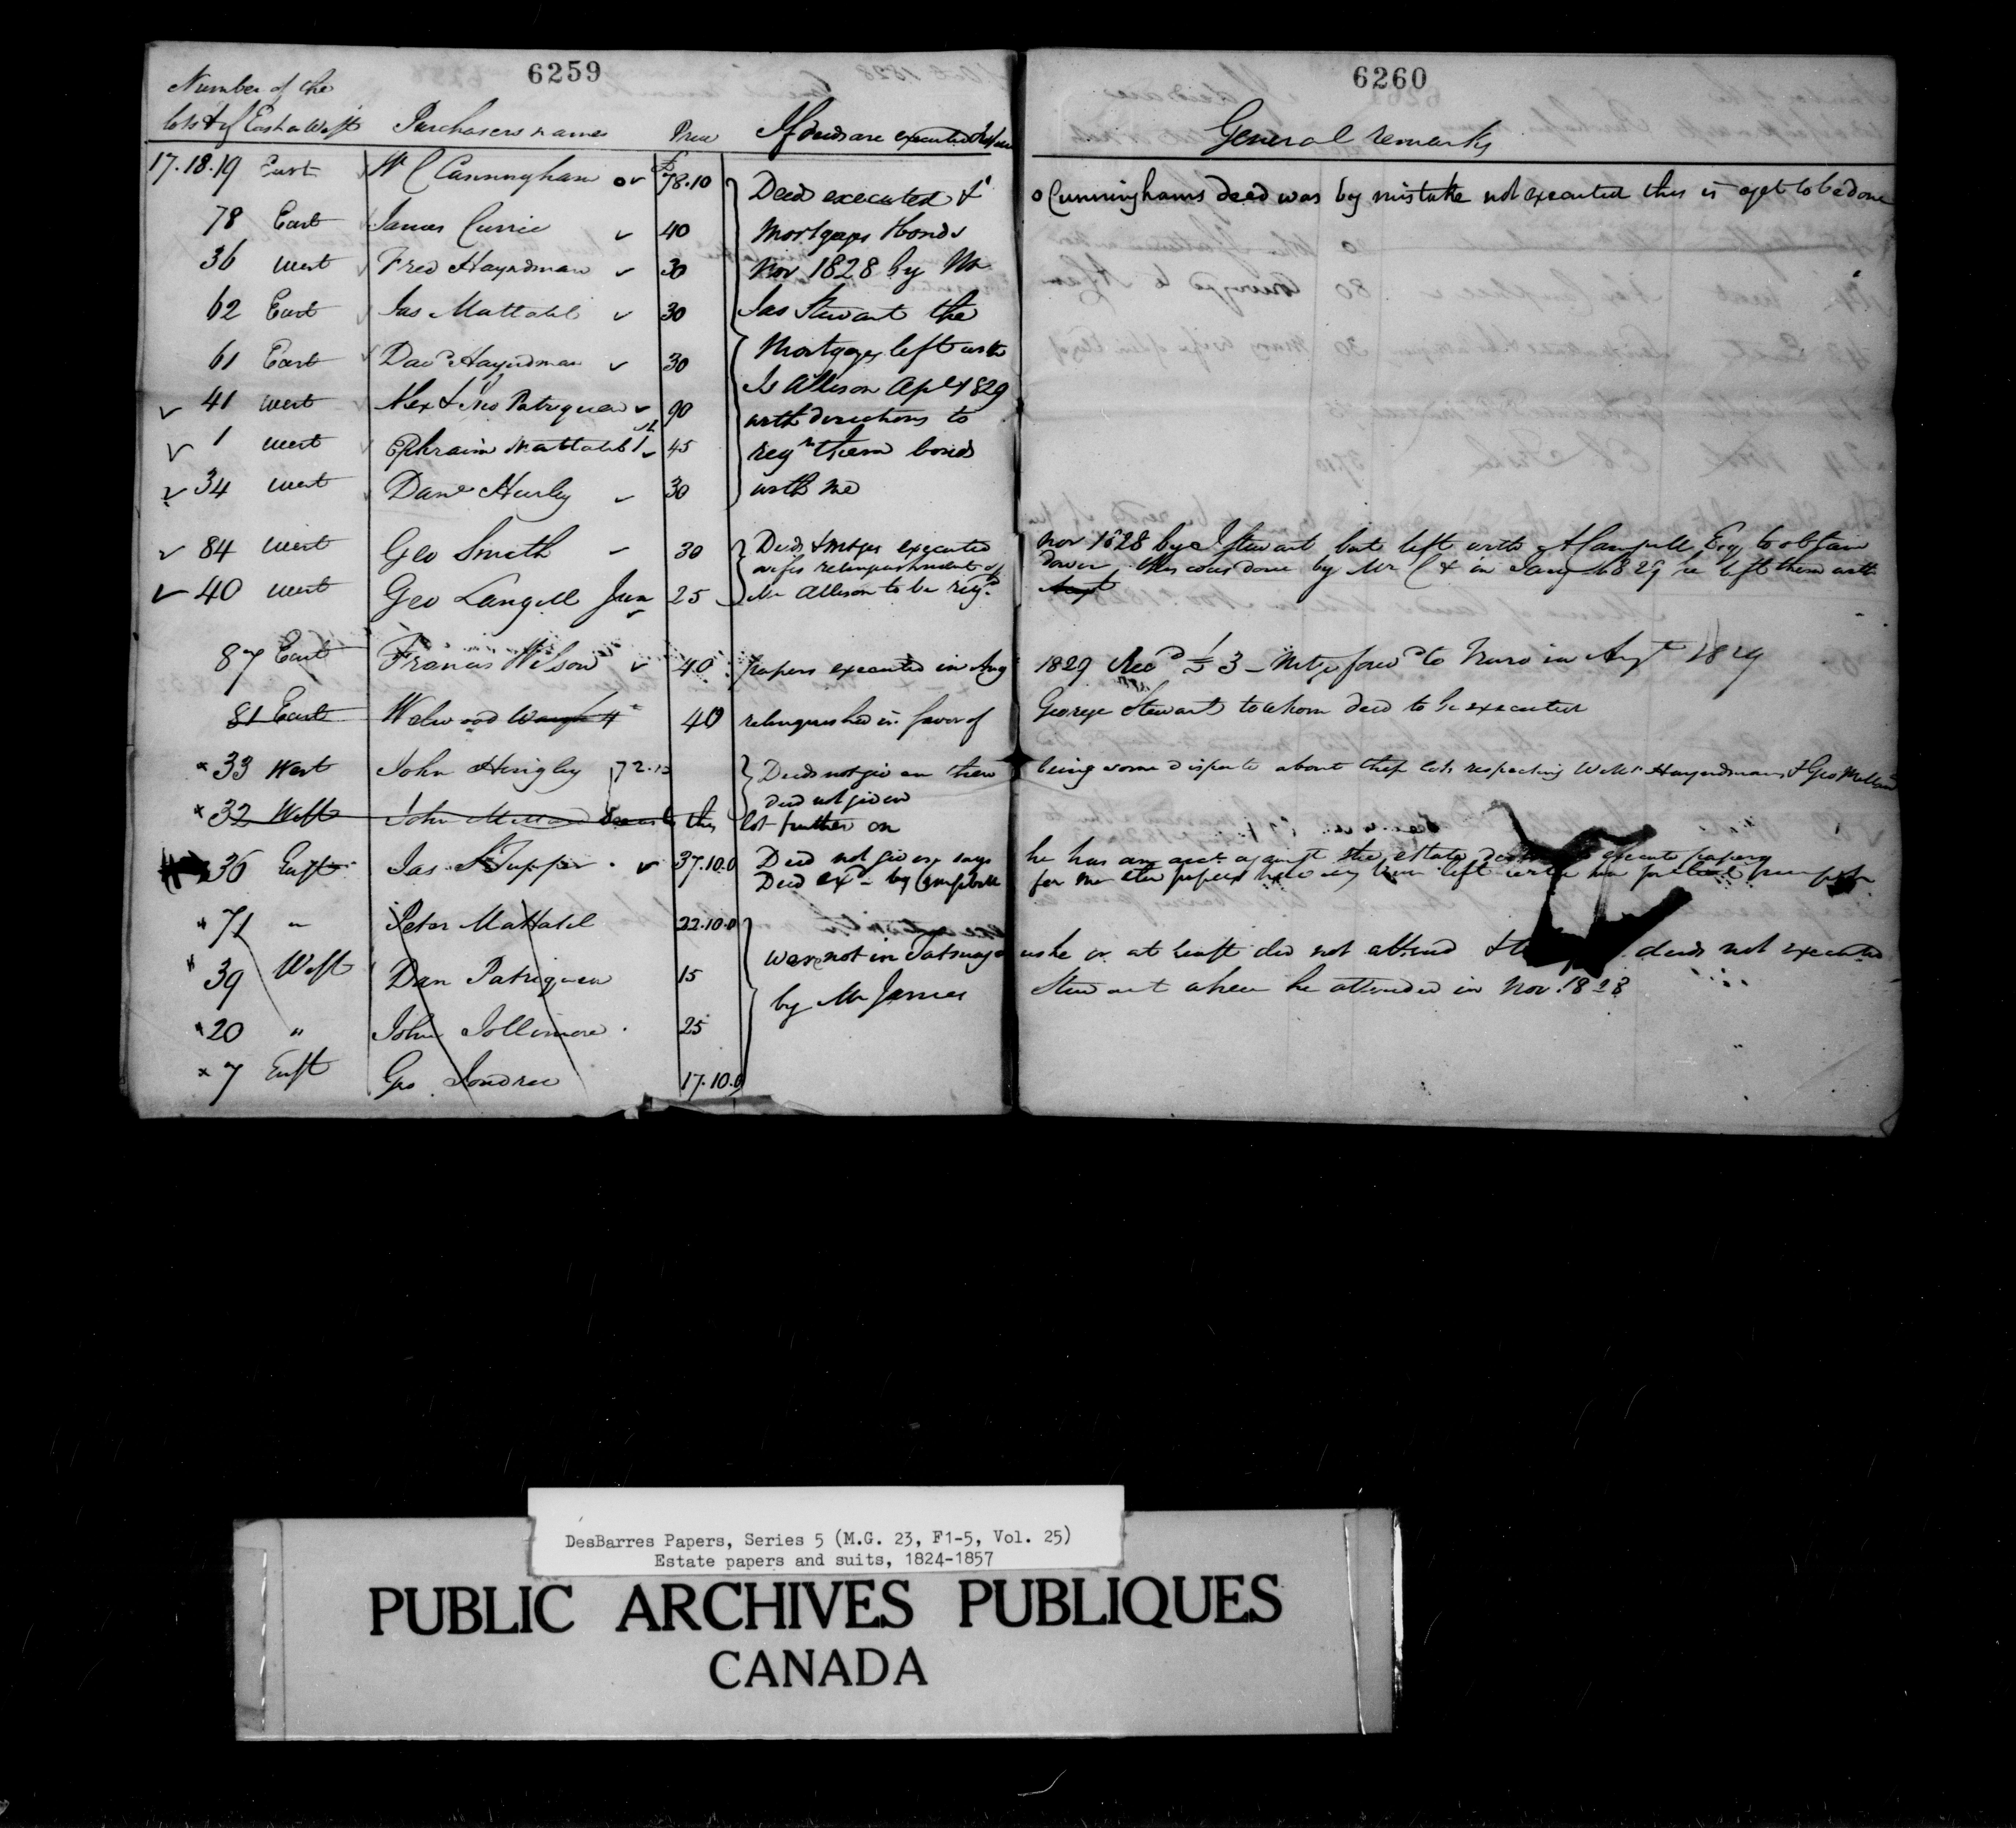 6259
Number of the
lots & if East or West Purchasers names Price If deeds are executed
17.18.19 East W C Cunningham o £78.10 Deed executed &
78 East James Currie 40 Mortgages & bonds
36 West Fred Hayndman 30 Nov 1828 by Mr
62 East Jas Mattatal 30 Jas Stewart the
61 East Davd Hayndman 30 Mortgages left with
41 West Alex & Patriquen 90 Allison Apl 1829
with directions to
1 West Ephraim Mattatal 45 regr them bonds
34 West Danl Hurley 30 with me
84 West Geo Smith 30 Deeds & Mtges executed
wifes relinquishment of
40 West Geo Langell Jun 25 Mr Allison to be regd
87 East Francis Wilson 40 papers executed in Aug
81 East Welwood Waugh 40 relinquished in favor of
33 West John Hingley 72.15 Deeds not given there
deed not given
32 West John this lot further on
36 East Jas Tupper 37.10.0 Deed not given says
Deed exd by Campbell
71 " Peter Mattatal 22.10.0
39 West Dan Patriquen 15 were not in Tatmag
20 " John Jollimore 25 by Mr James
7 East Geo 17.10.0
6260
General remarks
o Cunninghams deed was by mistake not executed this is yet to be done
Nov 1828 by J Stewart but left with Esq to obtain
dower, this was done by Mr C & in Jany 1829 he left them with
1829 Recd 3 - Mtge forwd to Truro in Augt 1829
George Stewart to whom deed to be executed
being some dispute about these lots respecting Willm Hayndman & Geo
he has an acct against the estate execute papers
for me the papers left with him
ushe or at least did not attend & deeds not executed
Stewart when he attended in Nov. 1828
DesBarres Papers, Series 5 (M.G. 23, F1-5, Vol. 25)
Estate papers and suits, 1824-1857
PUBLIC ARCHIVES PUBLIQUES
CANADA